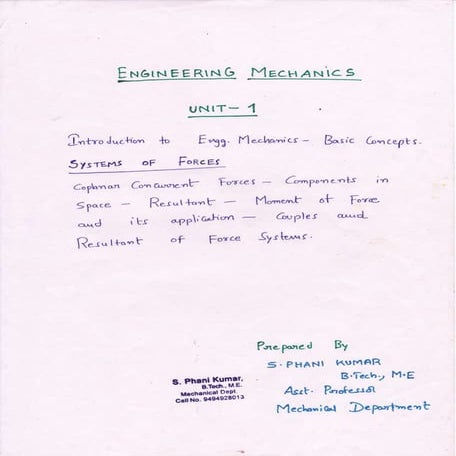 ENGINEERING MECHANICS
UNIT-1
Introduction to Engg. Mechanics - Basic Concepts.
SYSTEMS OF FORCES
Coplanar Concurrent Forces - Components in
Space - Resultant - Moment of Force
and its application - Couples and
Resultant of Force Systems.
Prepared By
S. PHANI KUMAR
B.Tech., M.E
Asst. Professor
Mechanical Department
S. Phani Kumar,
B.Tech., M.E.
Mechanical Dept.
Call No. 9494928013